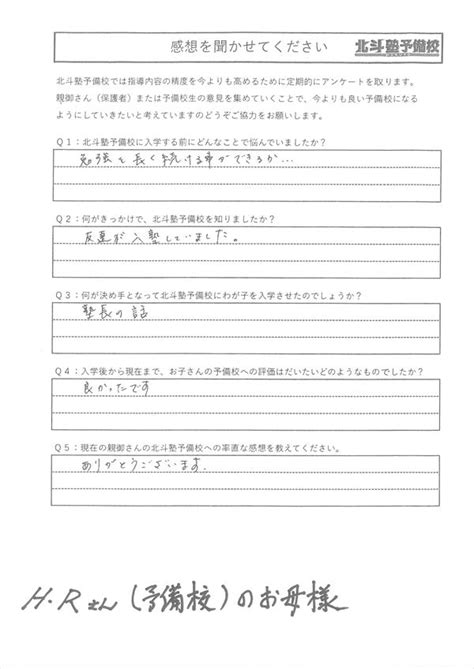 感想を聞かせてください 北斗塾予備校
北斗塾予備校では指導内容の精度を今よりも高めるために定期的にアンケートを取ります。
親御さん（保護者）または予備校生の意見を集めていくことで、今よりも良い予備校になる
ようにしていきたいと考えていますのでどうぞご協力をお願いします。
Q１：北斗塾予備校に入学する前にどんなことで悩んでいましたか？
勉強を長く続ける事ができるか…
Q２：何がきっかけで、北斗塾予備校を知りましたか？
友達が入塾していました。
Q３：何が決め手となって北斗塾予備校にわが子を入学させたのでしょうか？
塾長の話
Q４：入学後から現在まで、お子さんの予備校への評価はだいたいどのようなものでしたか？
良かったです
Q５：現在の親御さんの北斗塾予備校への率直な感想を教えてください。
ありがとうございます.
H.Rさん（予備校）のお母様